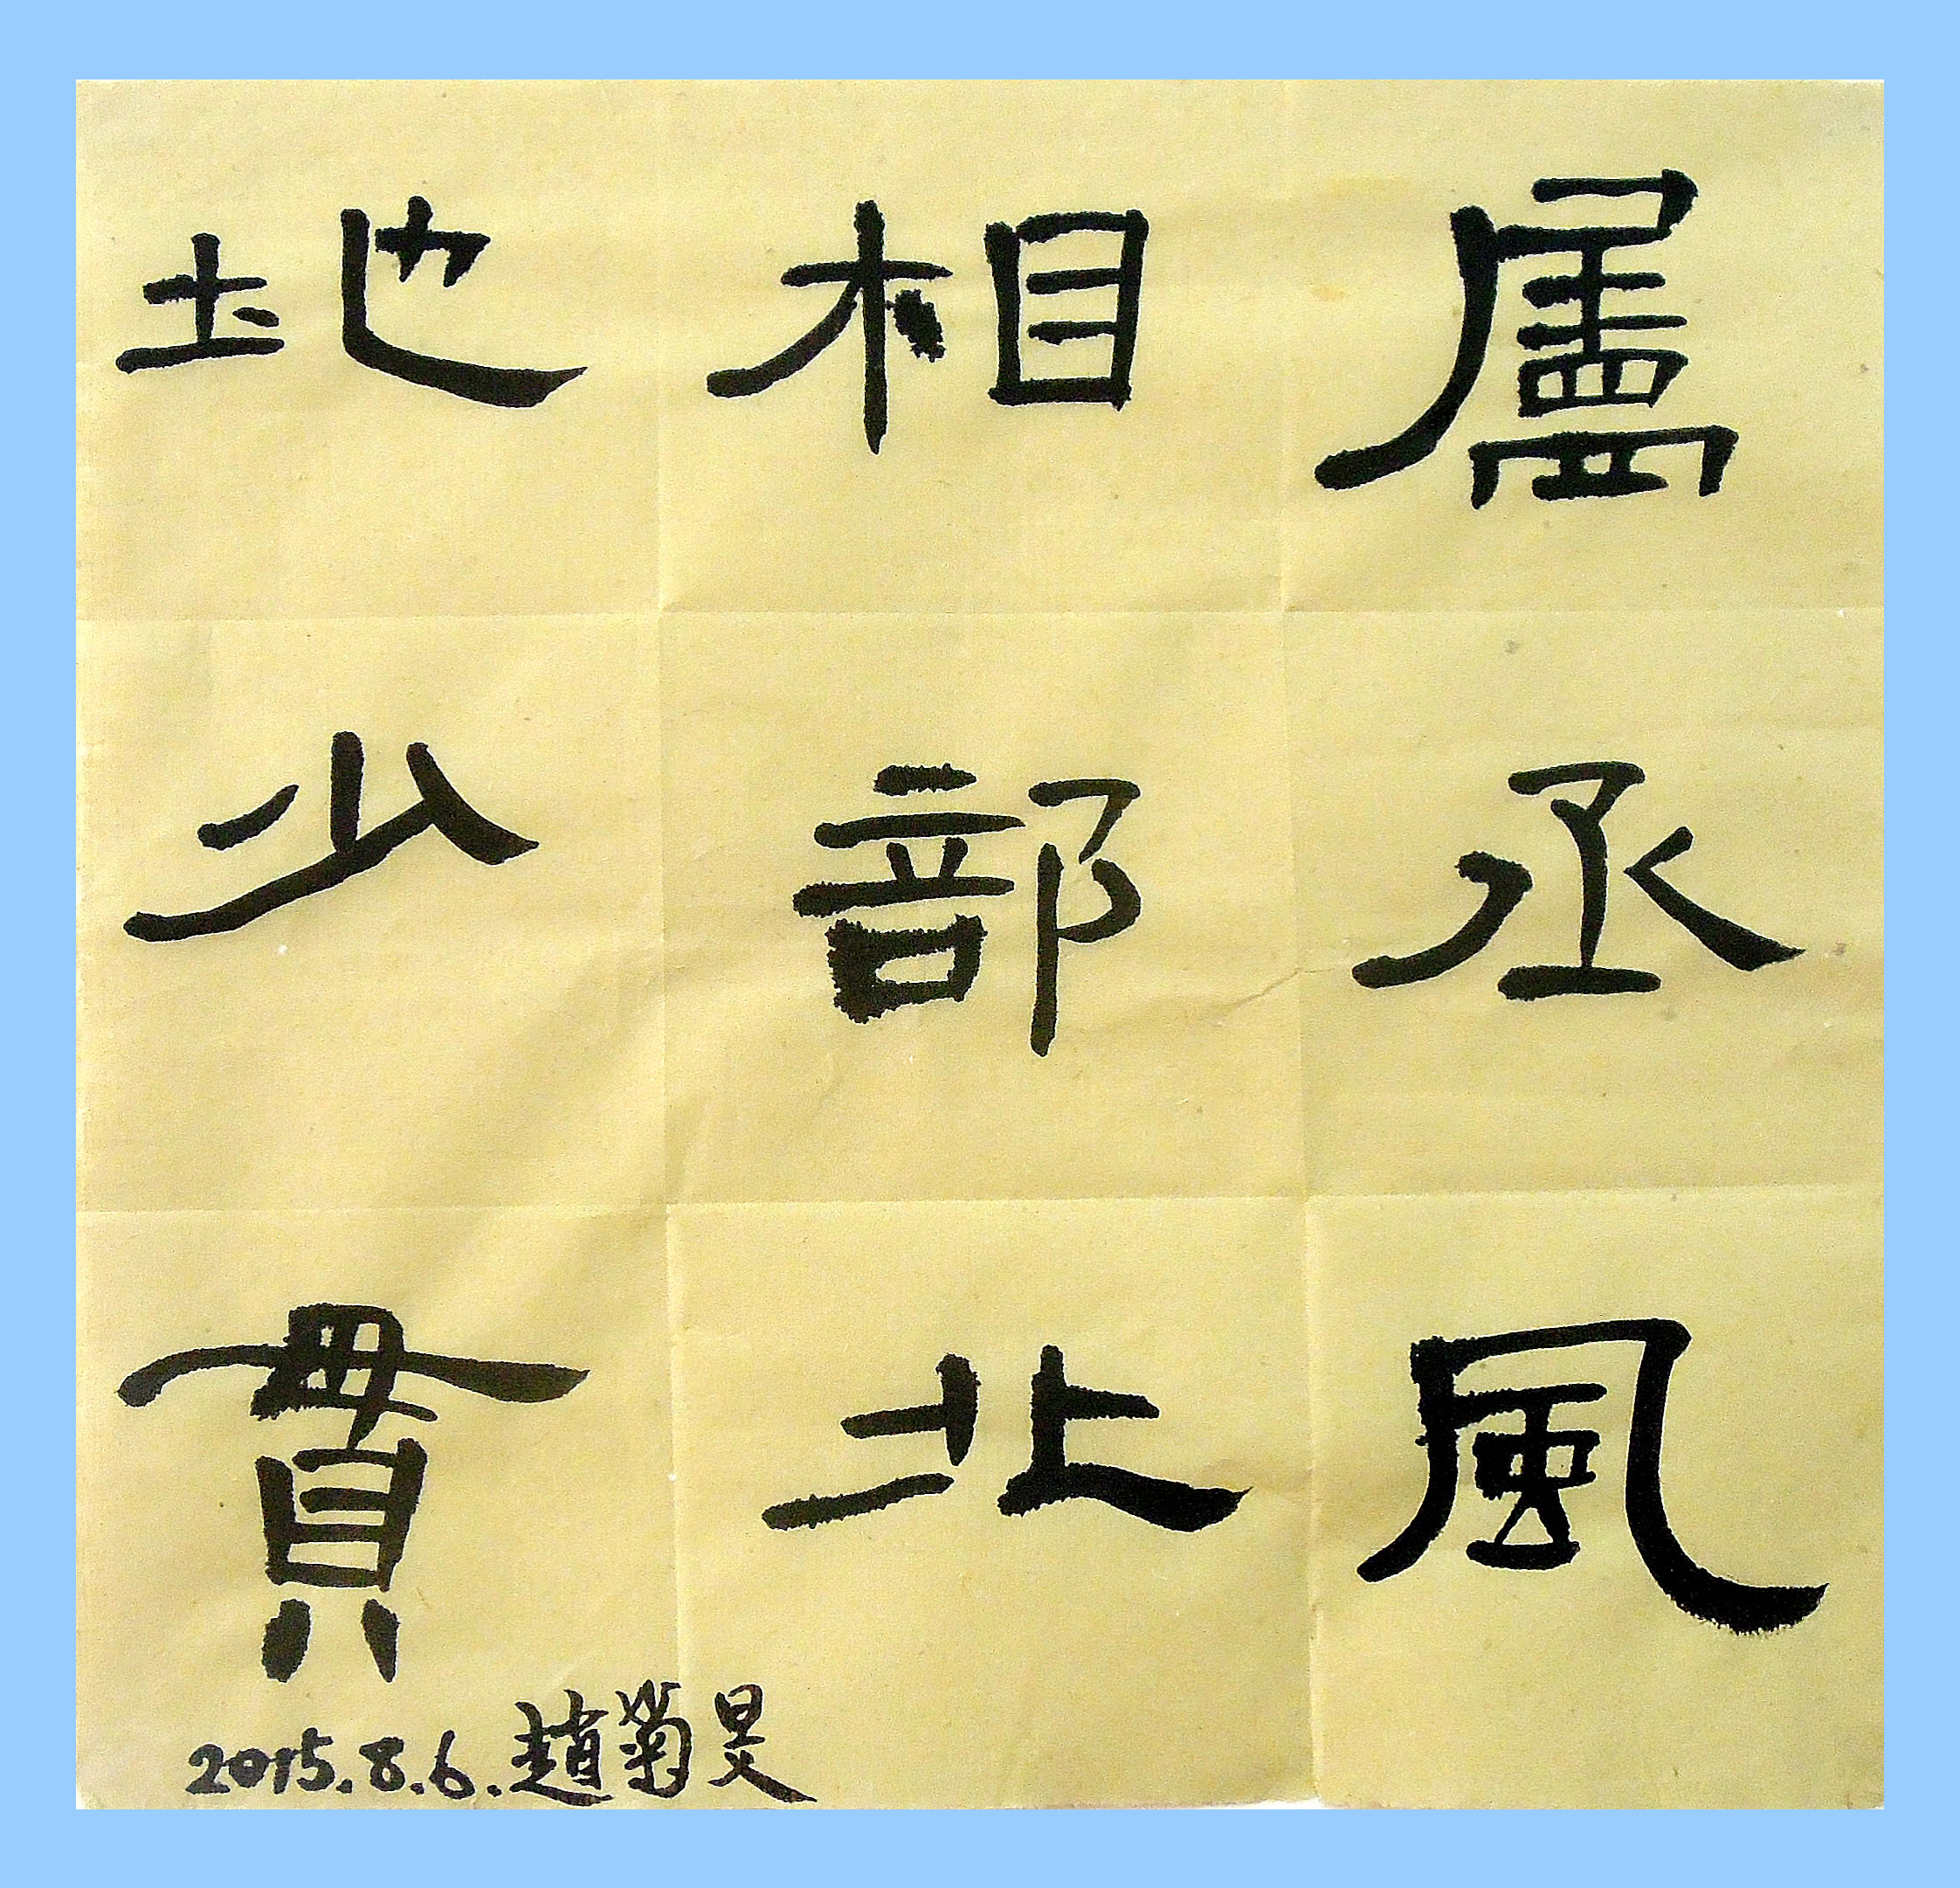 盧丞風
相部北
地少貫
2015.8.6.趙菊炅